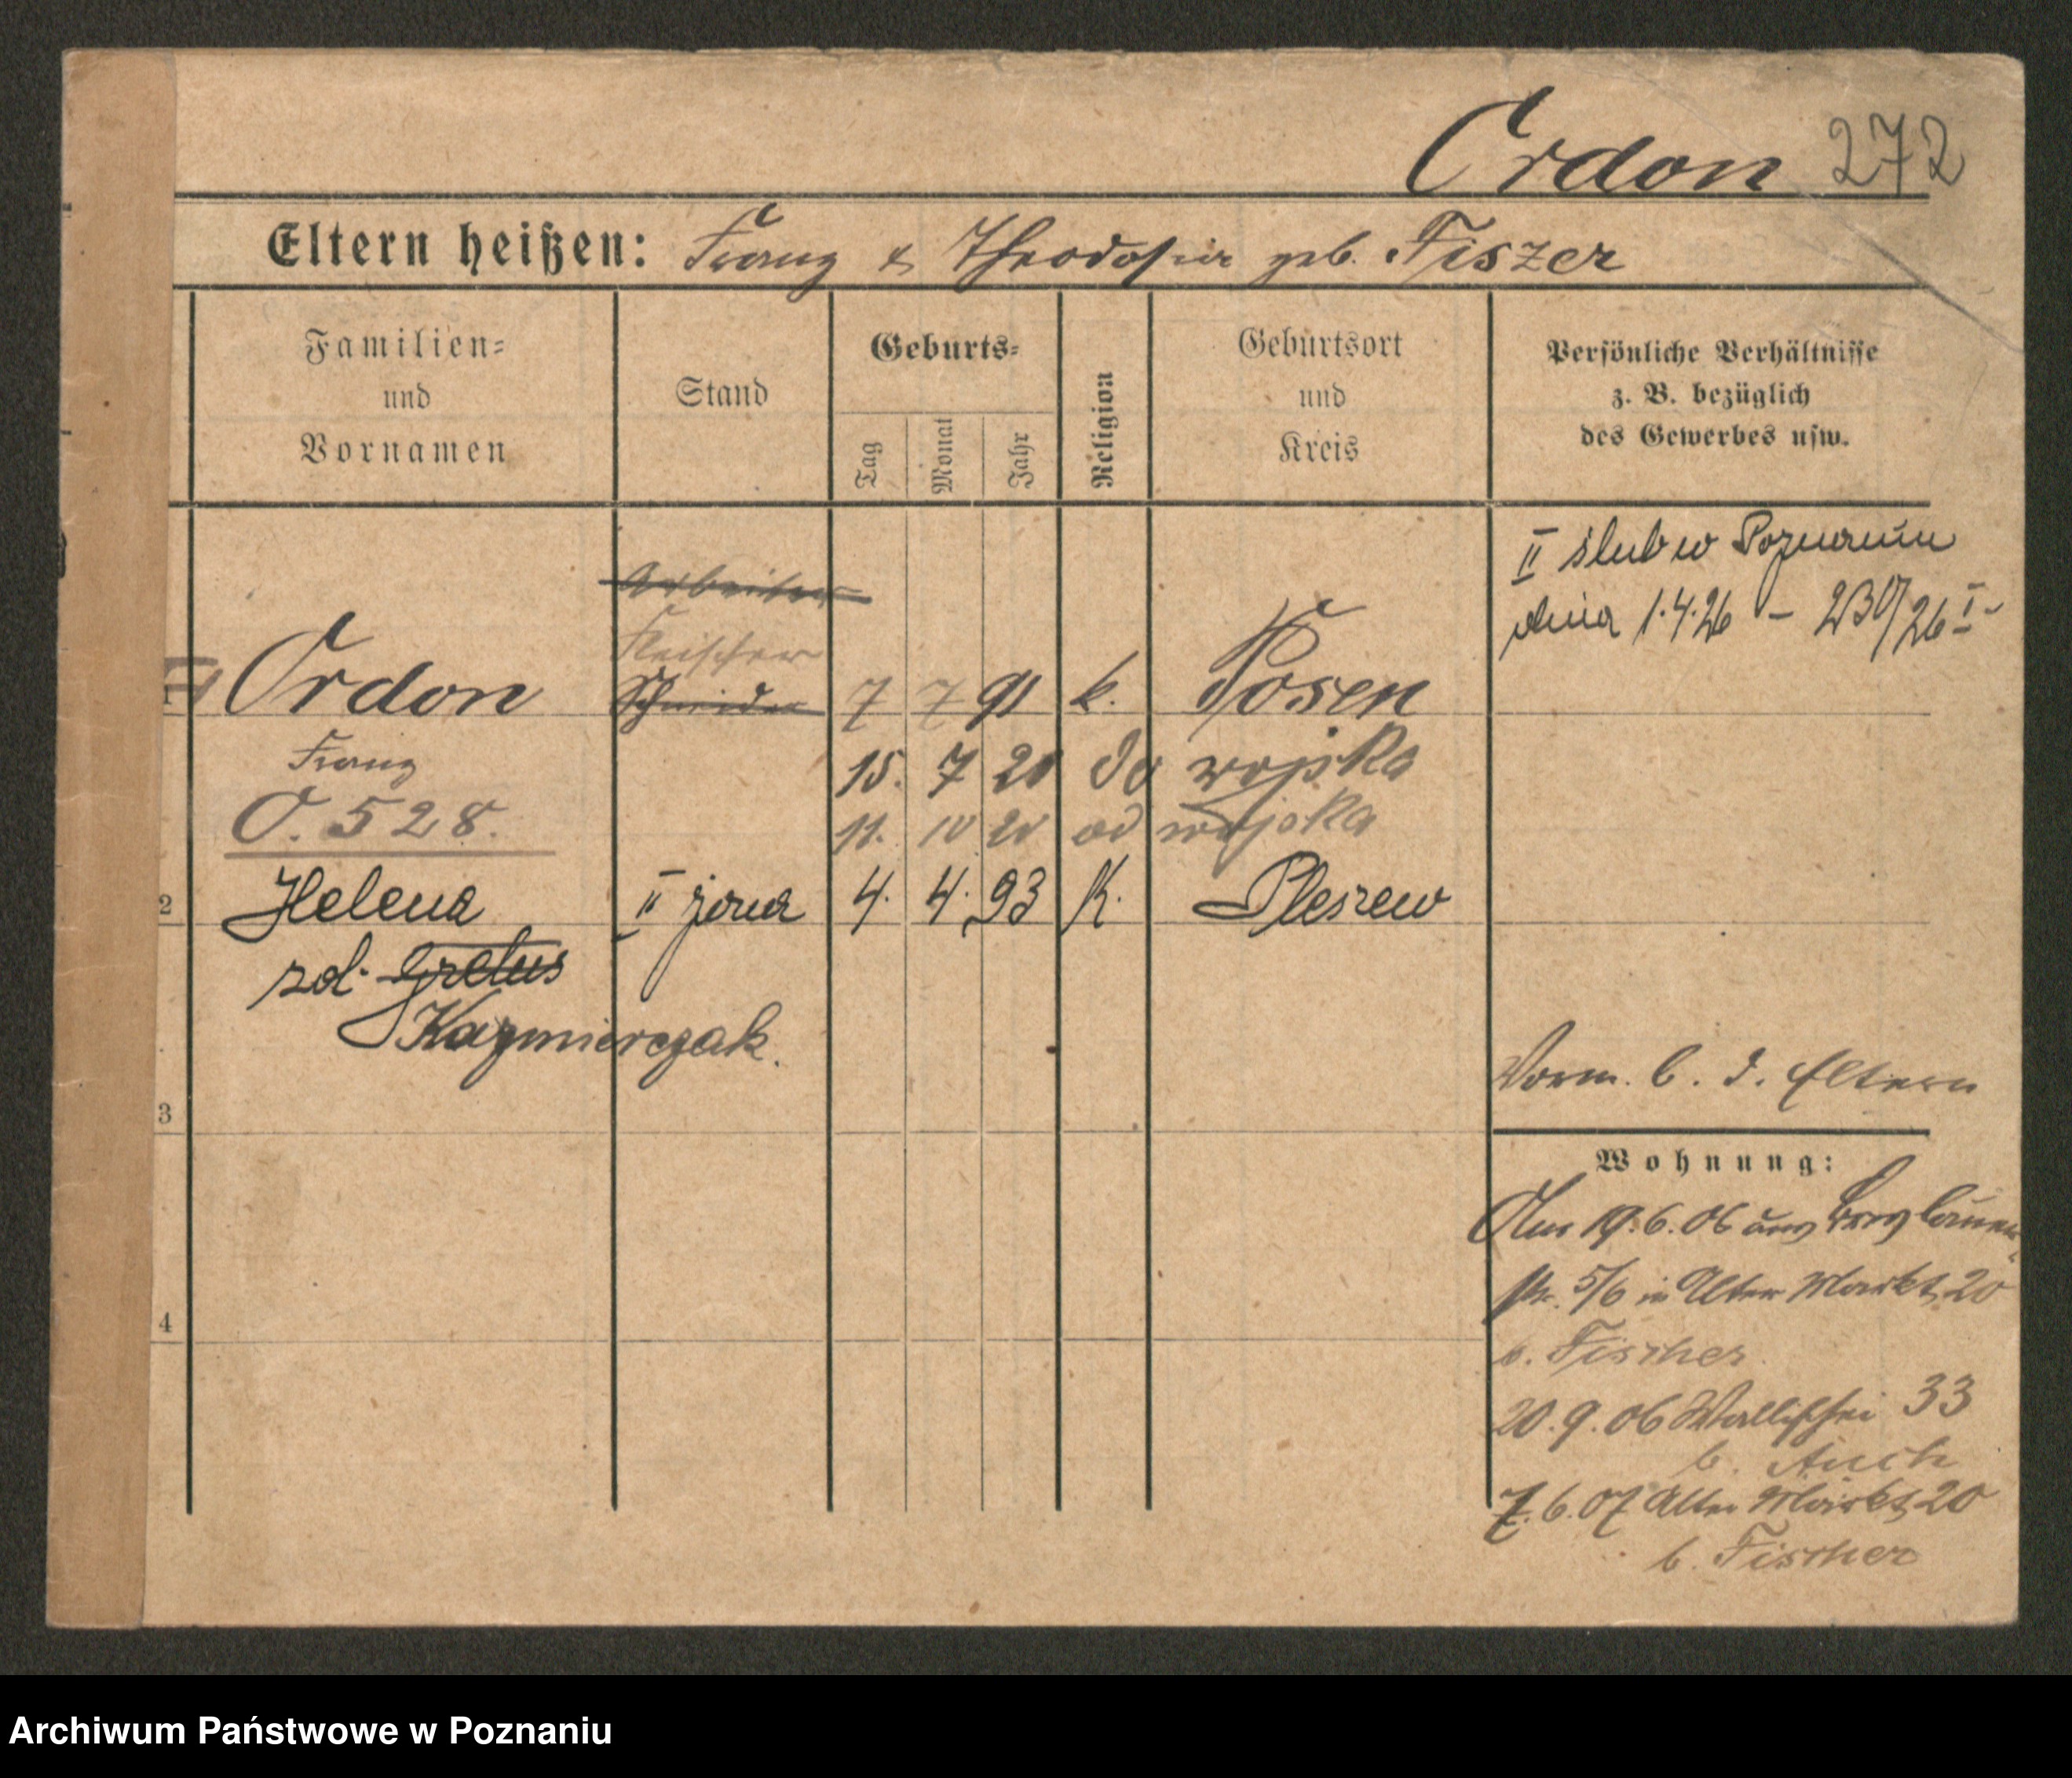 Ordon 272
Eltern heißen: Franz & Theodosia geb. Fiszer
Familien=
und
Vornamen
Stand
Geburts=
Tag
Monat
Jahr
Religion
Geburtsort
und
Kreis
Persönliche Verhältnisse
z. B. bezüglich
des Gewerbes usw.
II ślub w Poznaniu
dnia 1.4.26 - 230/26 I
Arbeiter
Fleischer
Ordon Schneider 7 7 91 k. Posen
Franz 15. 7 20 do wojska
O. 528. 11. 10 20 od wojska
2 Helena II żona 4. 4. 93 K. Pleszew
zd. Gretus
Kazmierczak.
Vorm. b. d. Eltern
3
Wohnung:
Am 19.6.06 aus
str. 5/6 in Alter Markt 20
4
b. Fischer
20.9.06 Wallischei 33
b.
7.6.07 Alter Markt 20
b. Fischer
Archiwum Państwowe w Poznaniu